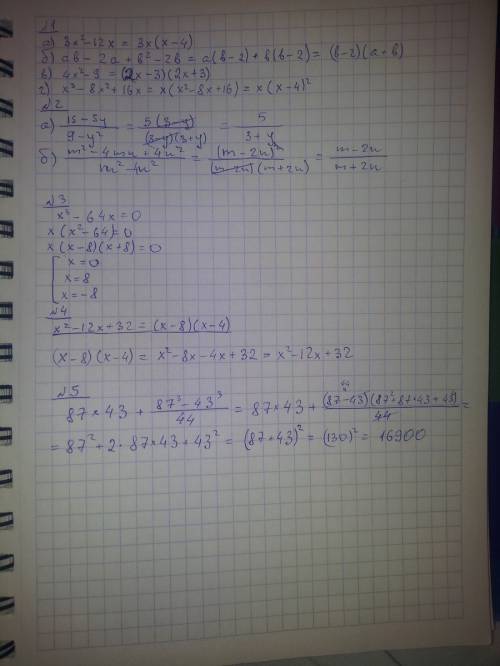 №1
а) 3x²-12x = 3x(x-4)
б) ab - 2a + b² - 2b = a(b-2) + b(b-2) = (b-2)(a+b)
в) 4x²-9 = (2x-3)(2x+3)
г) x³-8x²+16x = x(x²-8x+16) = x(x-4)²
№2
а) 15-5y / 9-y² = 5(3-y) / (3-y)(3+y) = 5 / 3+y
б) m²-4mn+4n² / m²-4n² = (m-2n)² / (m-2n)(m+2n) = m-2n / m+2n
№3
x³-64x=0
x(x²-64)=0
x(x-8)(x+8)=0
[ x=0
x=8
x=-8
№4
x²-12x+32 = (x-8)(x-4)
(x-8)(x-4) = x²-8x-4x+32 = x²-12x+32
№5
87×43 + 87³-43³ / 44 = 87×43 + (87-43)(87²+87×43+43²) / 44 =
= 87²+2·87×43+43² = (87+43)² = (130)² = 16900